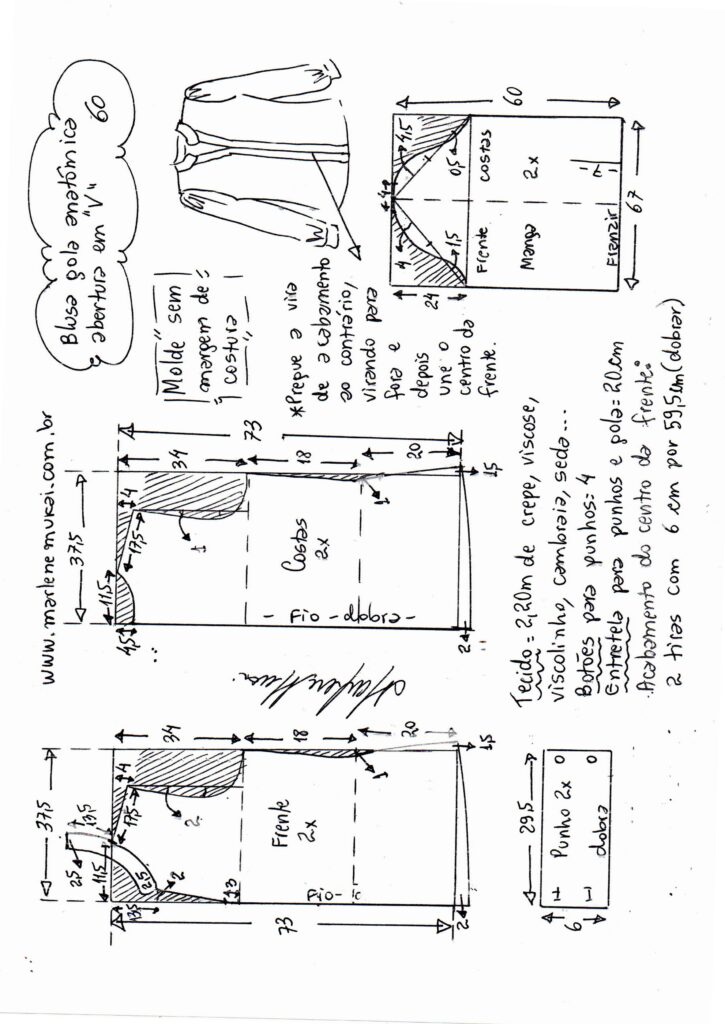 Blusa gola anatômica
abertura em "V" 60
www.marlenemukai.com.br
Molde sem
margem de
costura
*Pregue a vira
de acabamento
ao contrário,
virando para
fora e
depois
une o
centro da
frente.
37,5
13,5
2,5
11,5
17,5
4
34
2,5
2
2
13,5
3
18
73
Frente
2x
1
20
Fio
2
1,5
37,5
11,5
4,5
17,5
4
34
73
1
18
Costas
2x
1
20
- Fio - dobra -
2
1,5
4
4,5
4
1,5
0,5
24
60
Frente
Costas
Manga
2x
Franzir
67
29,5
Punho 2x
dobra
6
Tecido = 2,20m de crepe, viscose,
viscolinho, cambraia, seda...
Botões para punhos: 4
Entretela para punhos e gola = 20cm
Acabamento do centro da frente:
2 tiras com 6 cm por 59,5cm (dobrar)